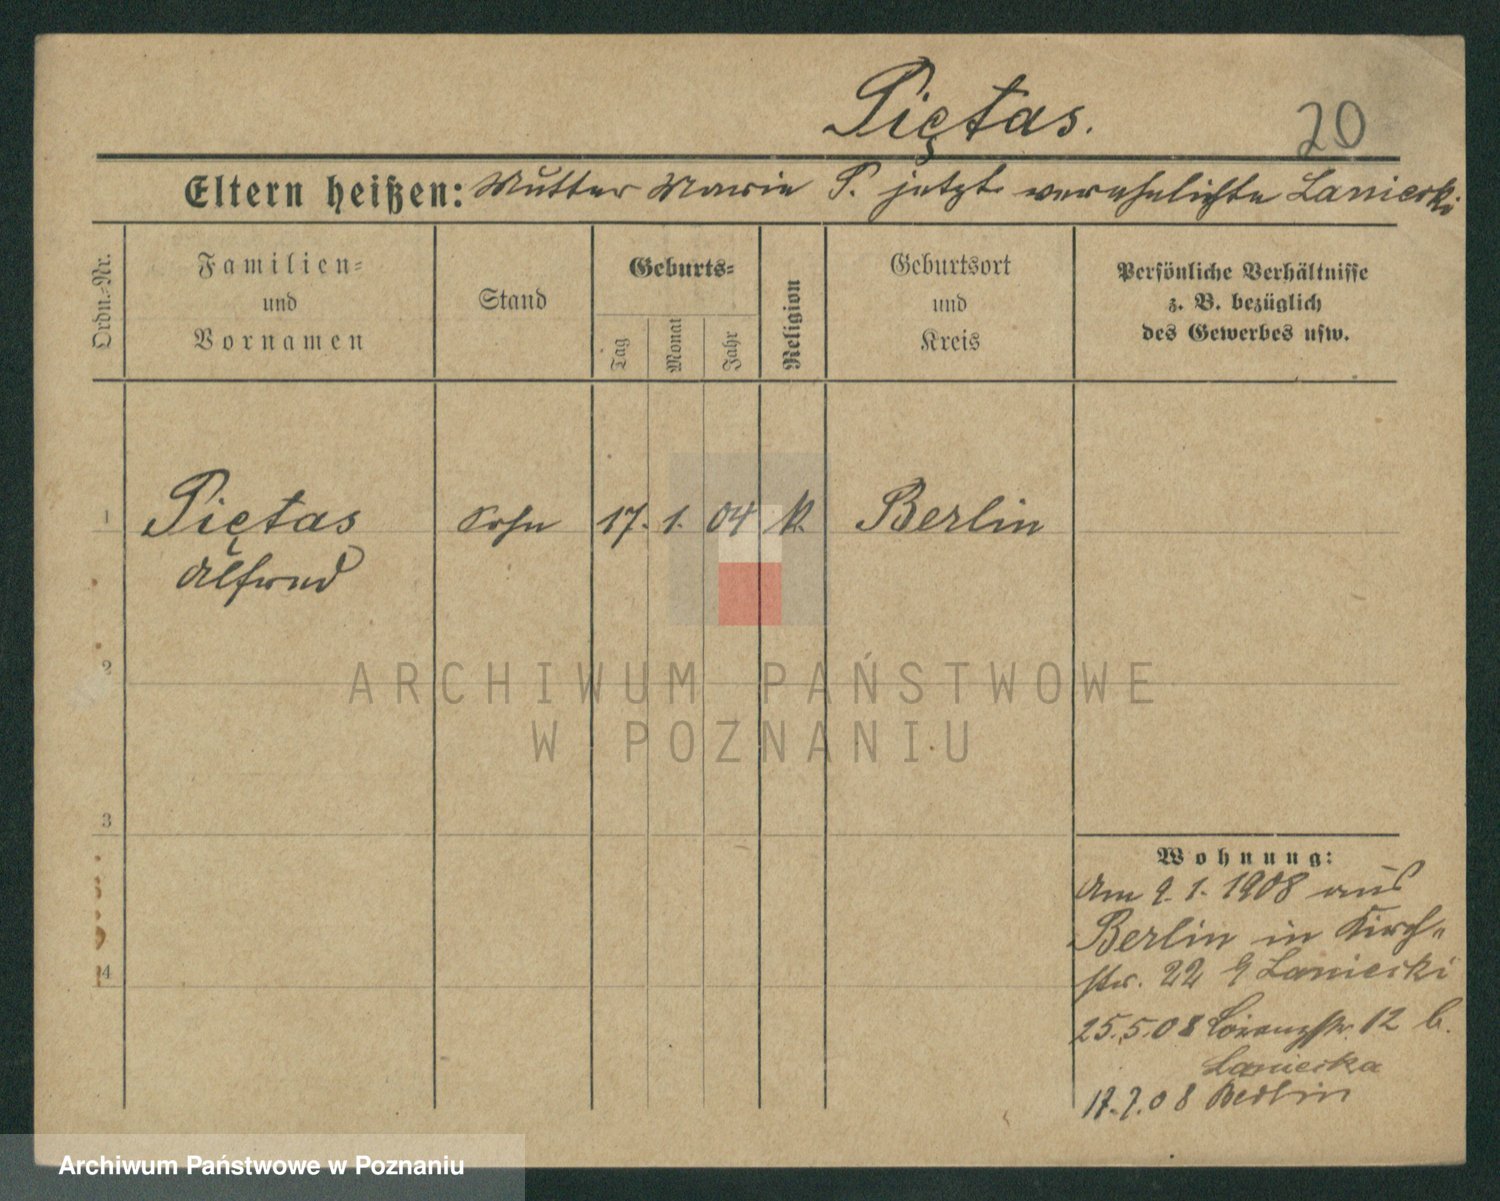 Piętas.
20
Eltern heißen: Mutter Marie P. jetzt verehelichte Laniecki
Ordn.-Nr.
Familien-
und
Vornamen
Stand
Geburts-
Tag
Monat
Jahr
Religion
Geburtsort
und
Kreis
Persönliche Verhältnisse
z. B. bezüglich
des Gewerbes usw.
1 Piętas Sohn 17. 1. 04 k. Berlin
Alfred
2
ARCHIWUM PAŃSTWOWE
W POZNANIU
3
Wohnung:
Am 9. 1. 1908 aus
Berlin in Kirch-
4
str. 22 Laniecki
25.5.08 Lorenzstr. 12 b.
Laniecka
17.7.08 Berlin
Archiwum Państwowe w Poznaniu